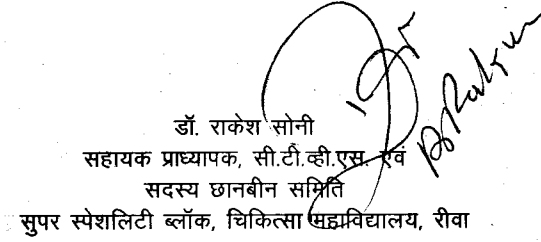 डॉ. राकेश सोनी
सहायक प्राध्यापक, सी.टी.व्ही.एस. एवं
सदस्य छानबीन समिति
सुपर स्पेशलिटी ब्लॉक, चिकित्सा महाविद्यालय, रीवा